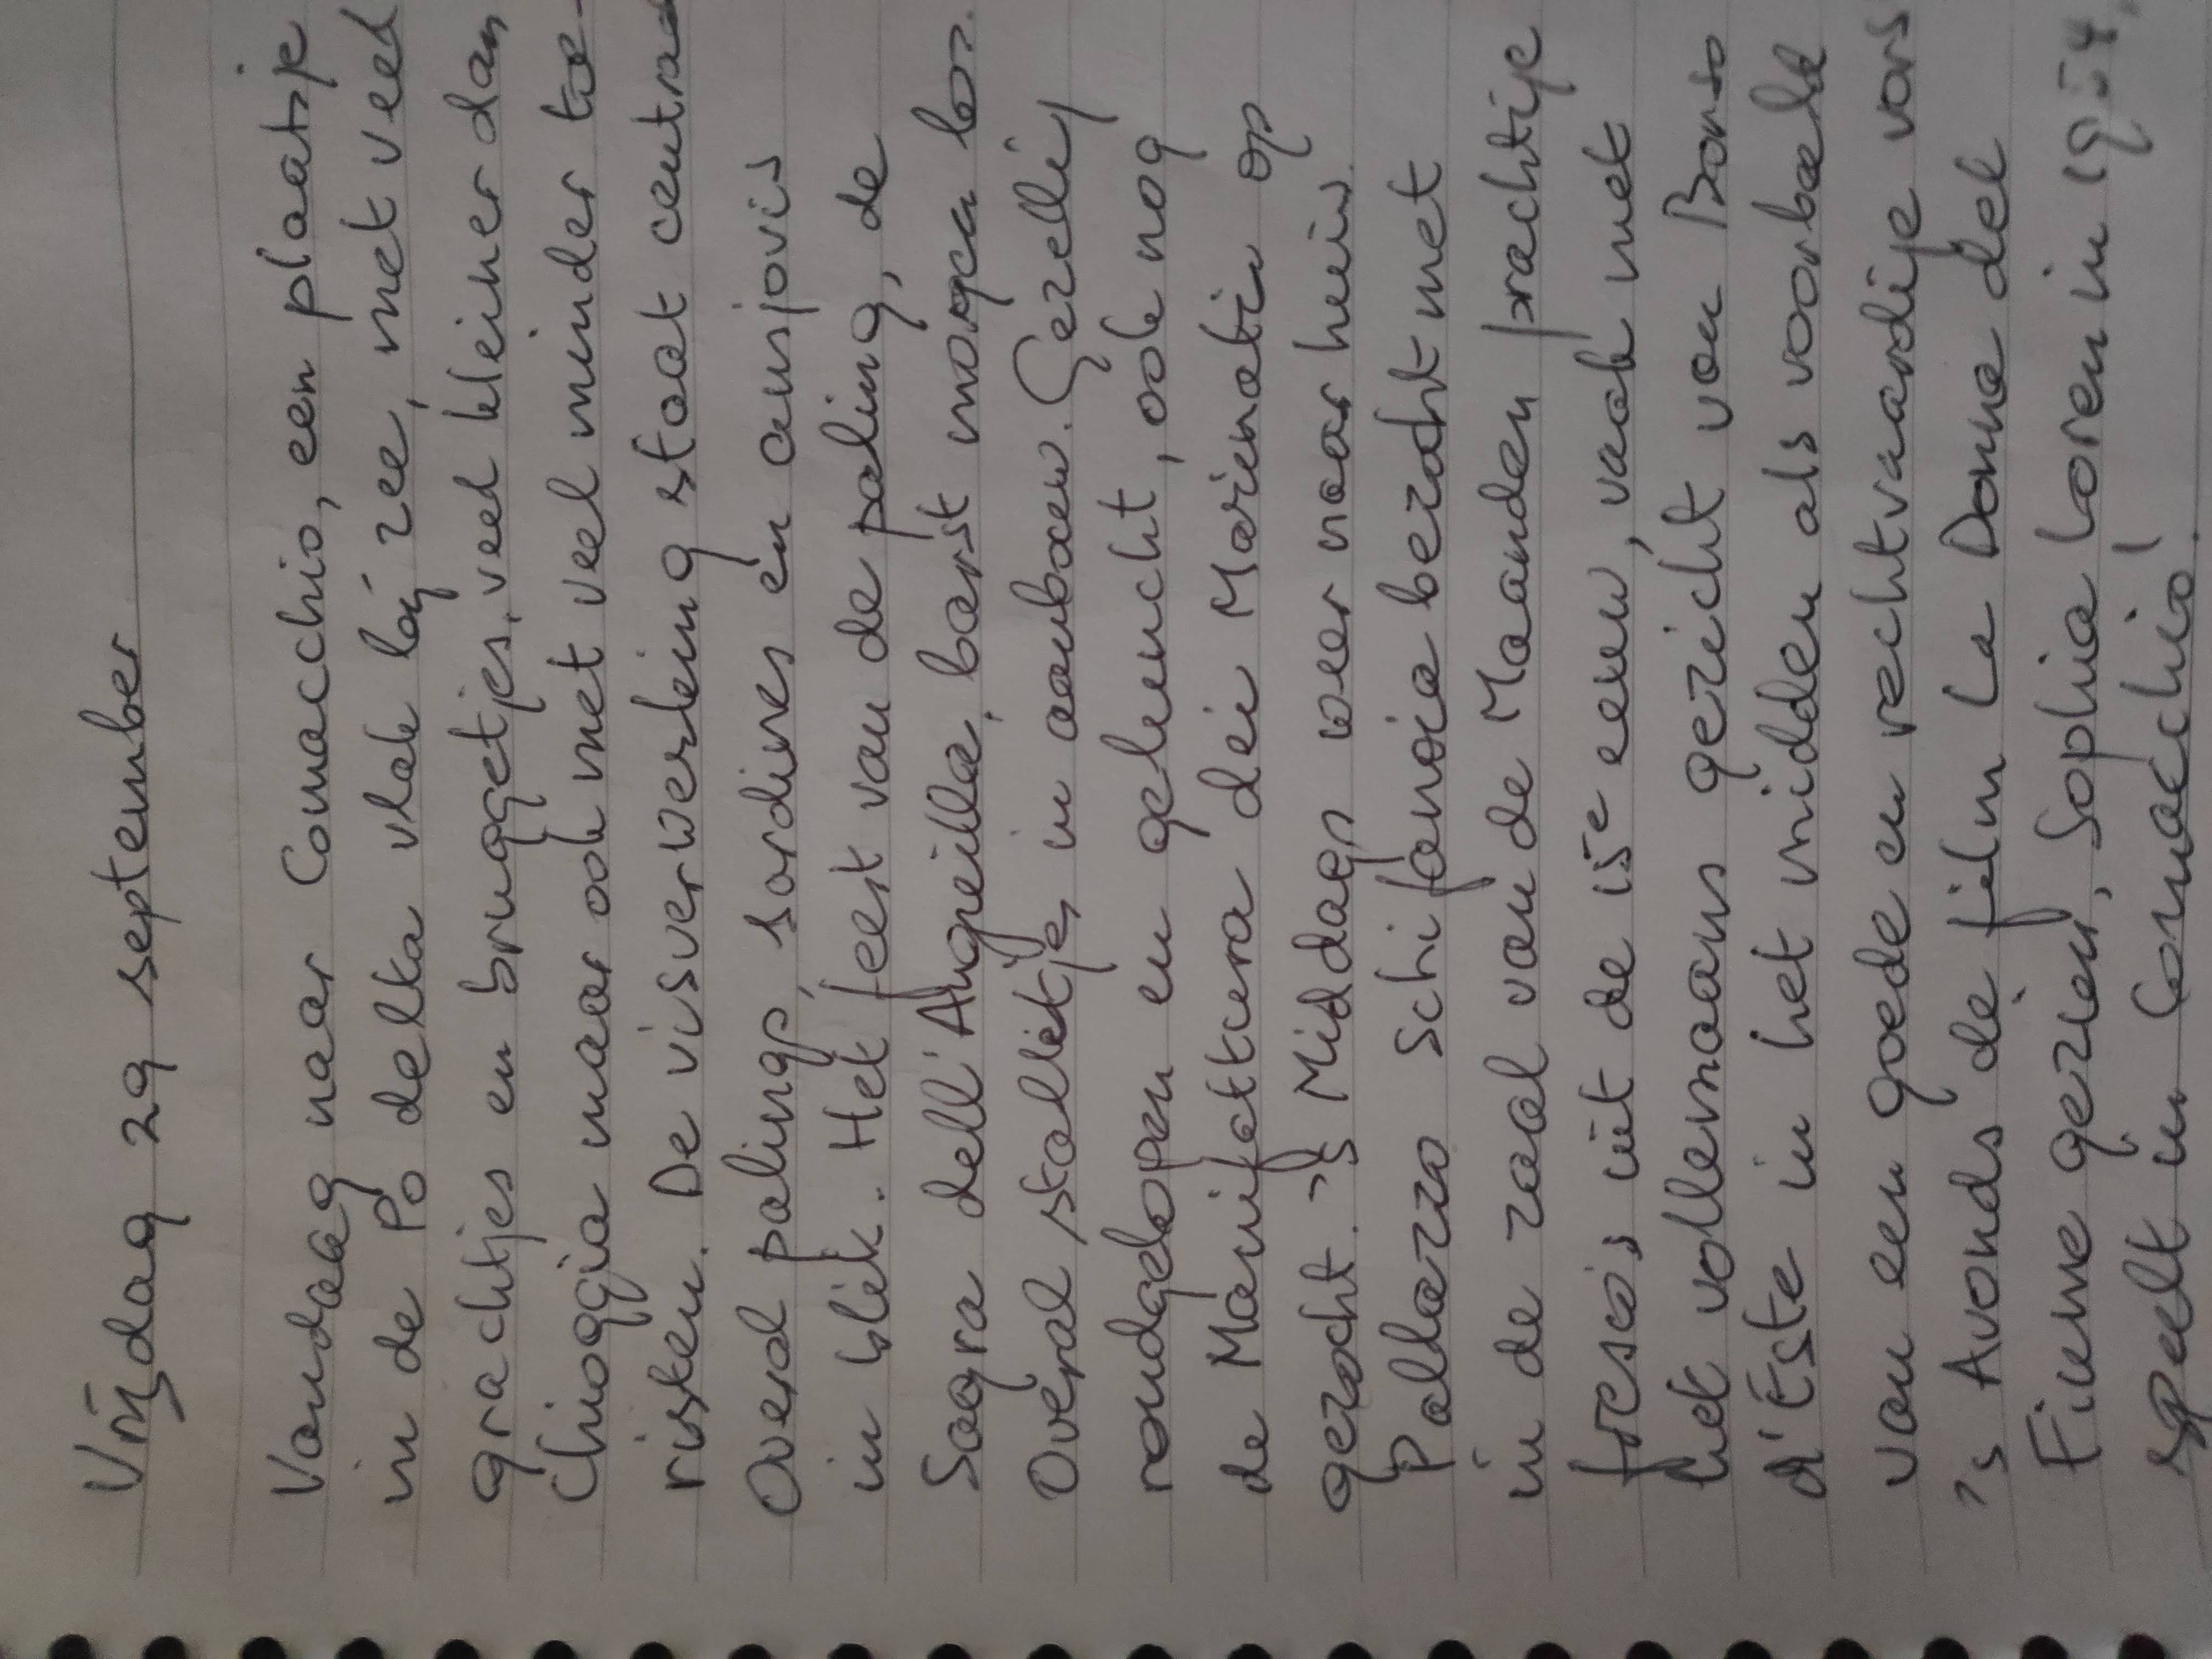 Vrijdag 29 september
Vandaag naar Comacchio, een plaatsje
in de Po delta vlak bij zee, met veel
grachtjes en bruggetjes, veel kleiner dan
Chioggia maar ook met veel minder toe-
risten. De visverwerking staat centraal
Overal palings, sardines en ansjovis
in blik. Het feest van de paling, de
Sagra dell'Anguilla, barst morgen los.
Overal stalletjes in aanbouw. Gezellig
rondgelopen en geluncht, ook nog
de Manifattura dei Marinati op
gezocht. 's Middags weer naar huis.
Pallazzo Schifanoia bezocht met
in de zaal van de Maanden prachtige
fresco's uit de 15e eeuw, vaak met
het vollemaans gezicht van Borso
d'Este in het midden als voorbeeld
van een goede en rechtvaardige vors
's Avonds de film La Donna del
Fiume gezien, Sophia Loren in 1954,
speelt in Comacchio!